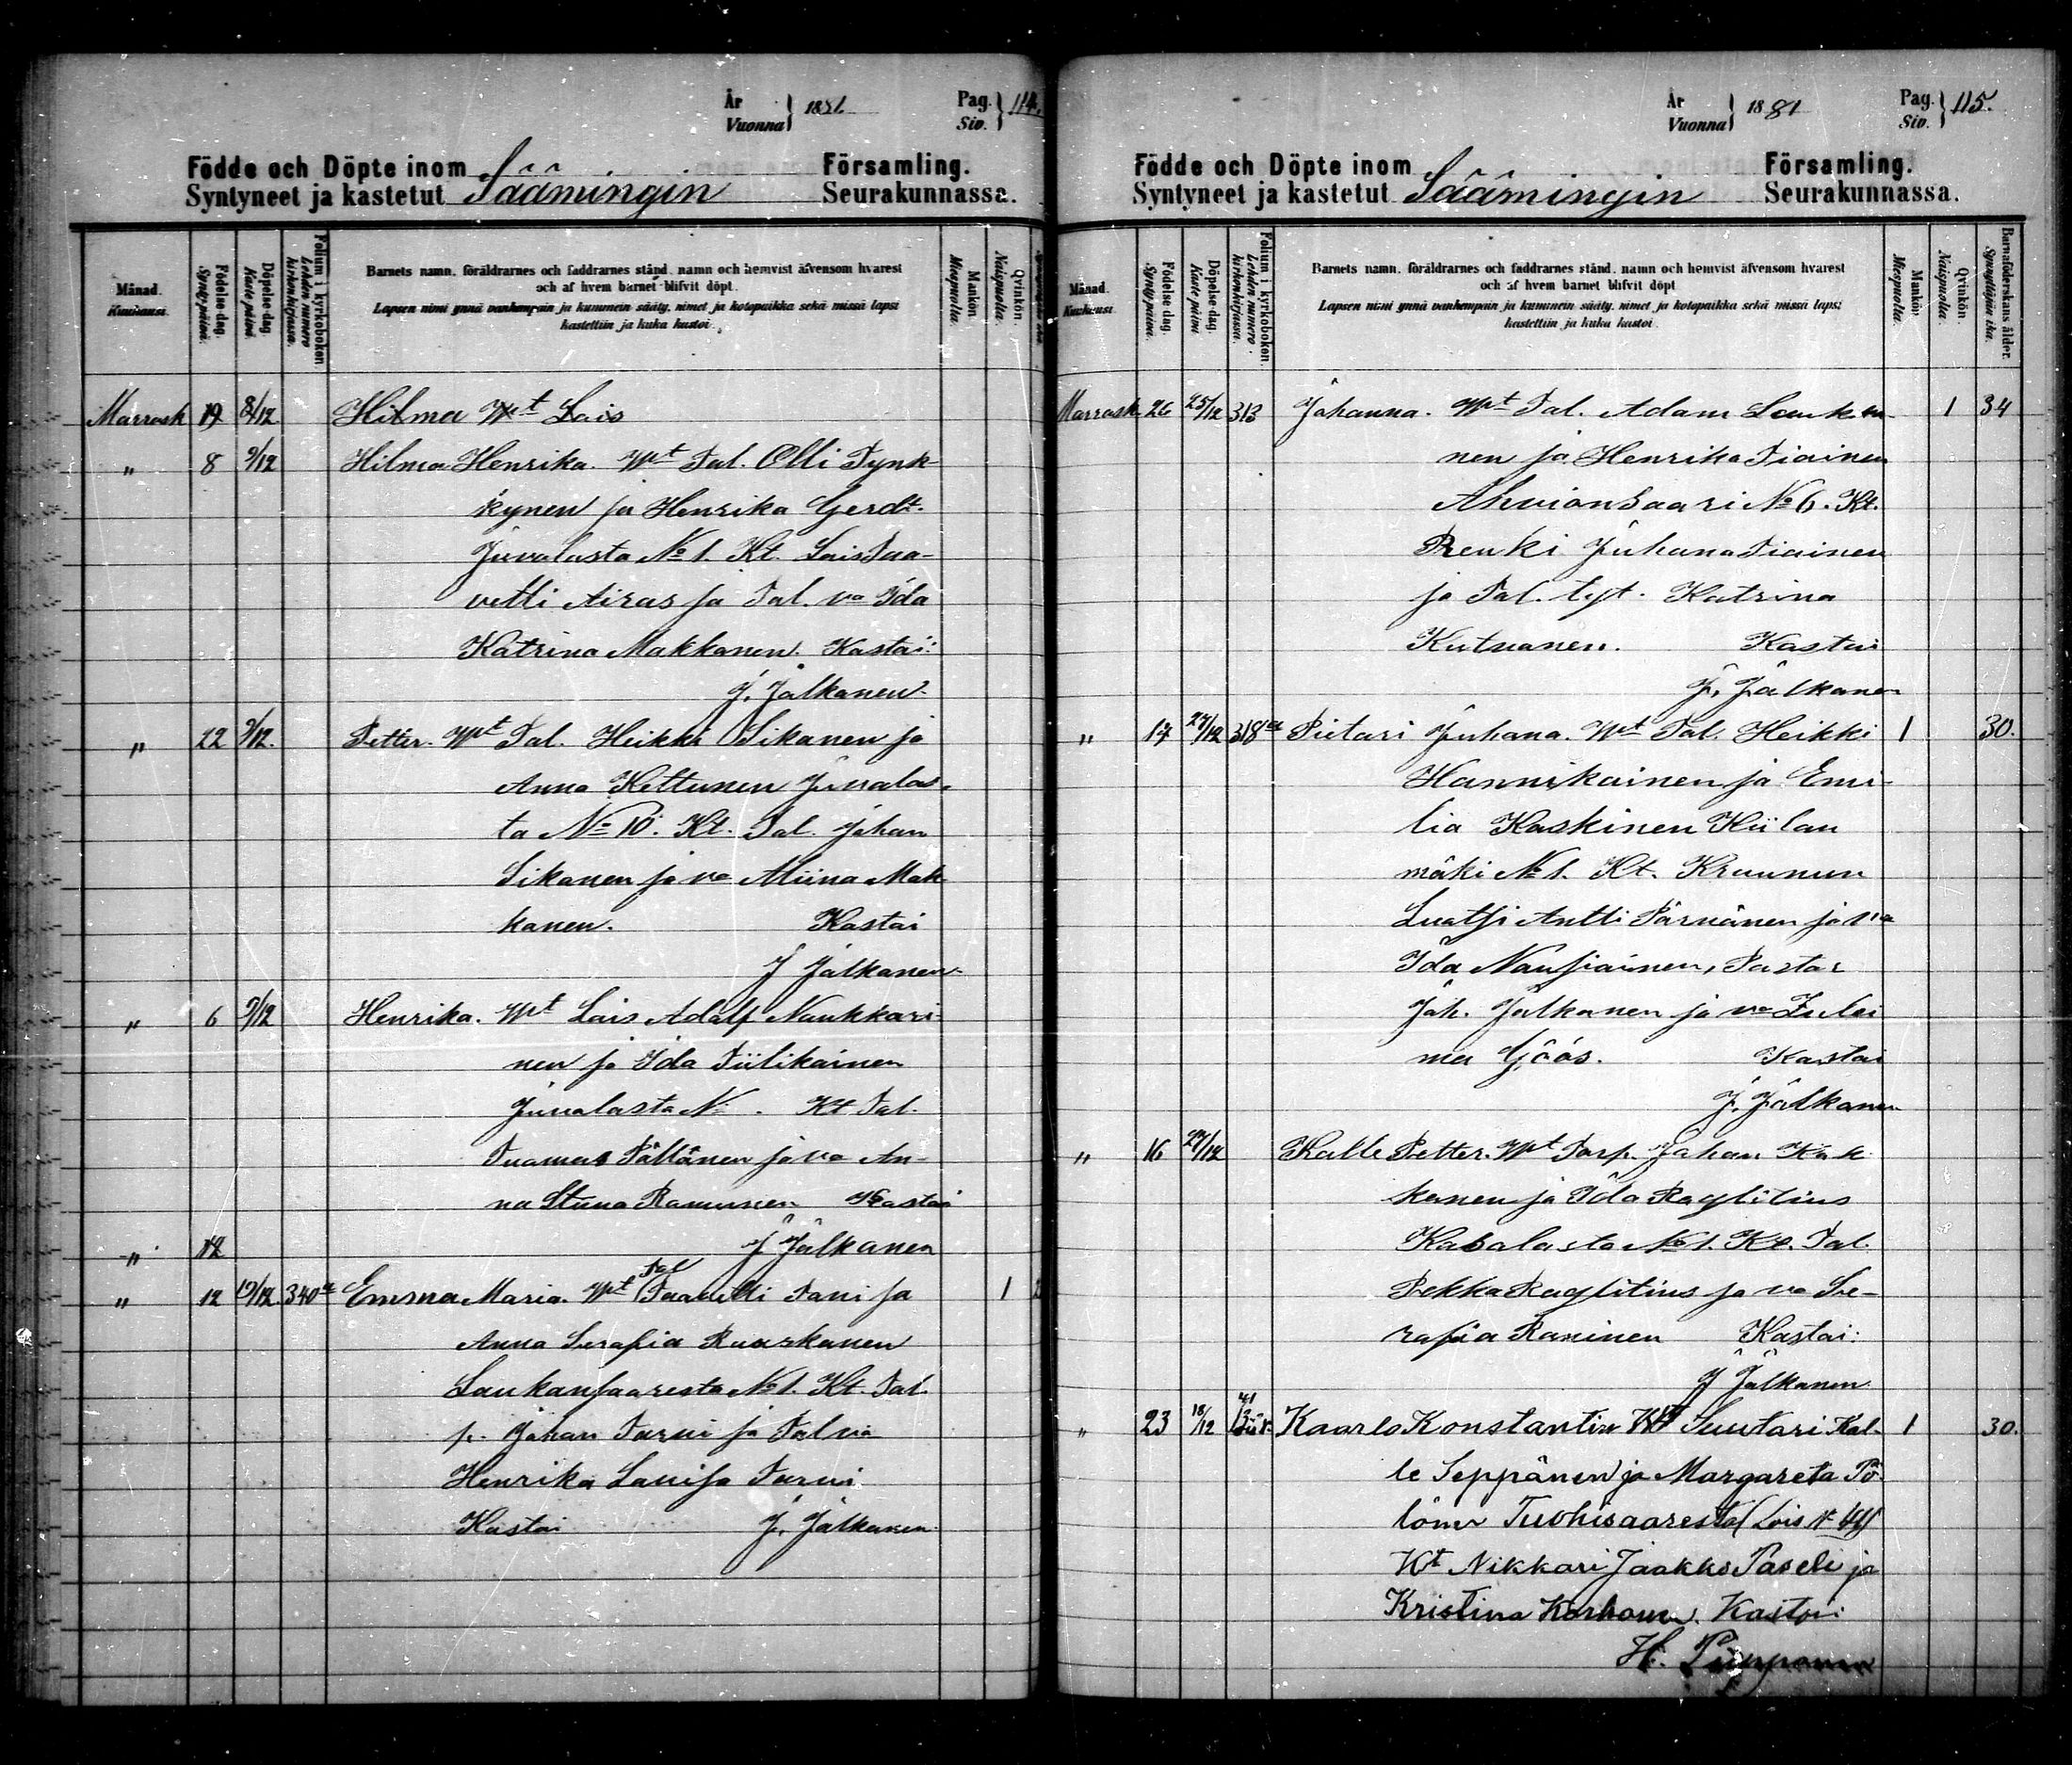 År Vuonna } 1881. Pag. Siv. } 114.
Födde och Döpte inom Församling.
Syntyneet ja kastetut Säämingin Seurakunnassa.
Månad. Kuukausi.
Födelse dag. Synty-päivä.
Döpelse-dag. Kaste-päivä.
Folium i kyrkoboken Lehden numero kirkonkirjassa.
Barnets namn, föräldrarnes och faddrarnes stånd, namn och hemvist äfvensom hvarest
och af hvem barnet blifvit döpt.
Lapsen nimi ynnä vanhempain ja kummein sääty, nimet ja kotopaikka sekä missä lapsi
kastettiin ja kuka kastoi.
Mankön. Miespuolta.
Qvinkön. Naispuolta.
Marrask 19 8/12 Hilma Wt Lois
" 8 9/12 Hilma Henrika. Wt Tal. Olli Tynk-
kynen ja Henrika Gerdt.
Juvolasta No 1. Kt. Lois Taa-
vetti Airas ja Tal. vo Ida
Katrina Makkonen. Kastoi:
J. Jalkanen.
" 22 9/12. Petter. Wt Tal. Heikki Sikanen ja
Anna Kettunen Juvolas-
ta No 10. Kt. Tal. Johan
Sikanen ja vo Miina Mak-
konen. Kastoi
J Jalkanen.
" 6 9/12 Henrika. Wt Lois Adolf Naukkari-
nen ja Ida Tiilikainen
Juvolasta No . Kt Tal.
Tuomas Pöllänen ja vo An-
na Stuna Kastoi
" 12 J Jalkanen
" 12 19/12. 340a Emma Maria. Wt Tal Taavetti Parvi ja 1
Anna Serafia Ruuskanen
Laukansaaresta No 1. Kt. Tal.
p. Johan Parvi ja Tal vo
Henrika Lovisa Parvi
Kastoi J. Jalkanen.
År Vuonna } 1881 Pag. Siv. } 115.
Födde och Döpte inom Församling.
Syntyneet ja kastetut Säämingin Seurakunnassa.
Månad. Kuukausi.
Födelse dag. Synty-päivä.
Döpelse-dag. Kaste-päivä.
Folium i kyrkoboken Lehden numero kirkonkirjassa.
Barnets namn, föräldrarnes och faddrarnes stånd, namn och hemvist äfvensom hvarest
och af hvem barnet blifvit döpt
Lapsen nimi ynnä vanhempain ja kummein sääty, nimet ja kotopaikka sekä missä lapsi
kastettiin ja kuka kastoi.
Mankön. Miespuolta.
Qvinkön. Naispuolta.
Barnaföderskans ålder. Synnyttäjän ikä.
Marrask. 26 25/12 313 Johanna. Wt Tal. Adam 1 34
nen ja Henrika Tiainen
Ahvionsaari No 6. Kt.
Renki Juhana Tiainen
ja Tal. tyt. Katrina
Kutvonen. Kastoi
J. Jalkanen
" 17 27/12 318a Pietari Juhana. Wt Tal. Heikki 1 30.
Hannikainen ja Emi-
lia Kaskinen Kiilan
mäki No 1. Kt. Kruunun
Luotsi Antti Pärnänen ja vo
Ida Nousiainen, Pastor
Joh. Jalkanen ja vo
ma Göös. Kastoi
J. Jalkanen
" 16 27/12 Kalle Petter. Wt Torp. Johan Kok-
konen ja Ida
No 1. Kt. Tal.
Pekka ja vo Se-
rafia Raninen Kastoi:
J Jalkanen
" 23 18/12 Kaarlo Konstantin Wt Suutari Kal- 1 30.
le Seppänen ja Margareta Pö-
lönen Tuohisaaresta (Lois No 44)
Kt Nikkari Jaakko ja
Kristina Korhonen. Kastoi:
H.